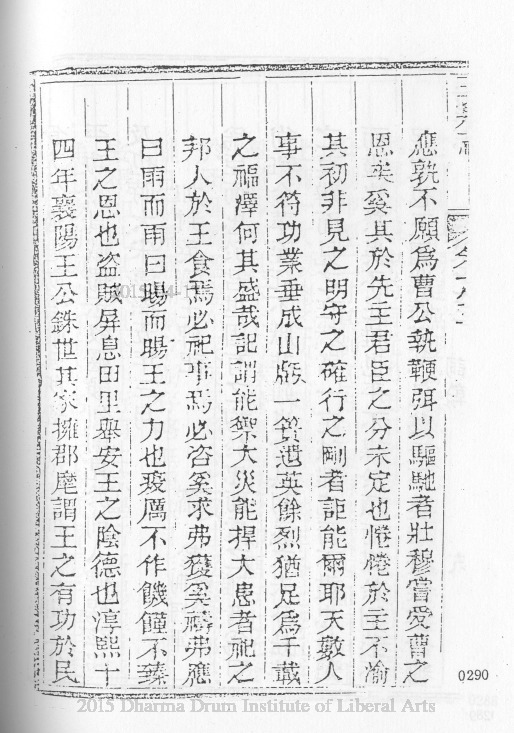 應孰不願爲曹公執鞭弭以驅馳者壯穆嘗受曹之
恩矣奚其於先王君臣之分未定也惓惓於主不渝
其初非見之明守之確行之剛者詎能爾耶天數人
事不符功業垂成山虧一簣遺英餘烈猶足爲千載
之福澤何其盛哉記謂能禦大災能捍大患者祀之
邦人於王食焉必祀事焉必咨奚求弗獲奚禱弗應
曰雨而雨曰暘而暘王之力也疫厲不作饑饉不臻
王之恩也盜賊屏息田里舉安王之陰德也淳熙十
四年襄陽王公銖世其家擁郡麾謂王之有功於民
0290
2015 Dharma Drum Institute of Liberal Arts